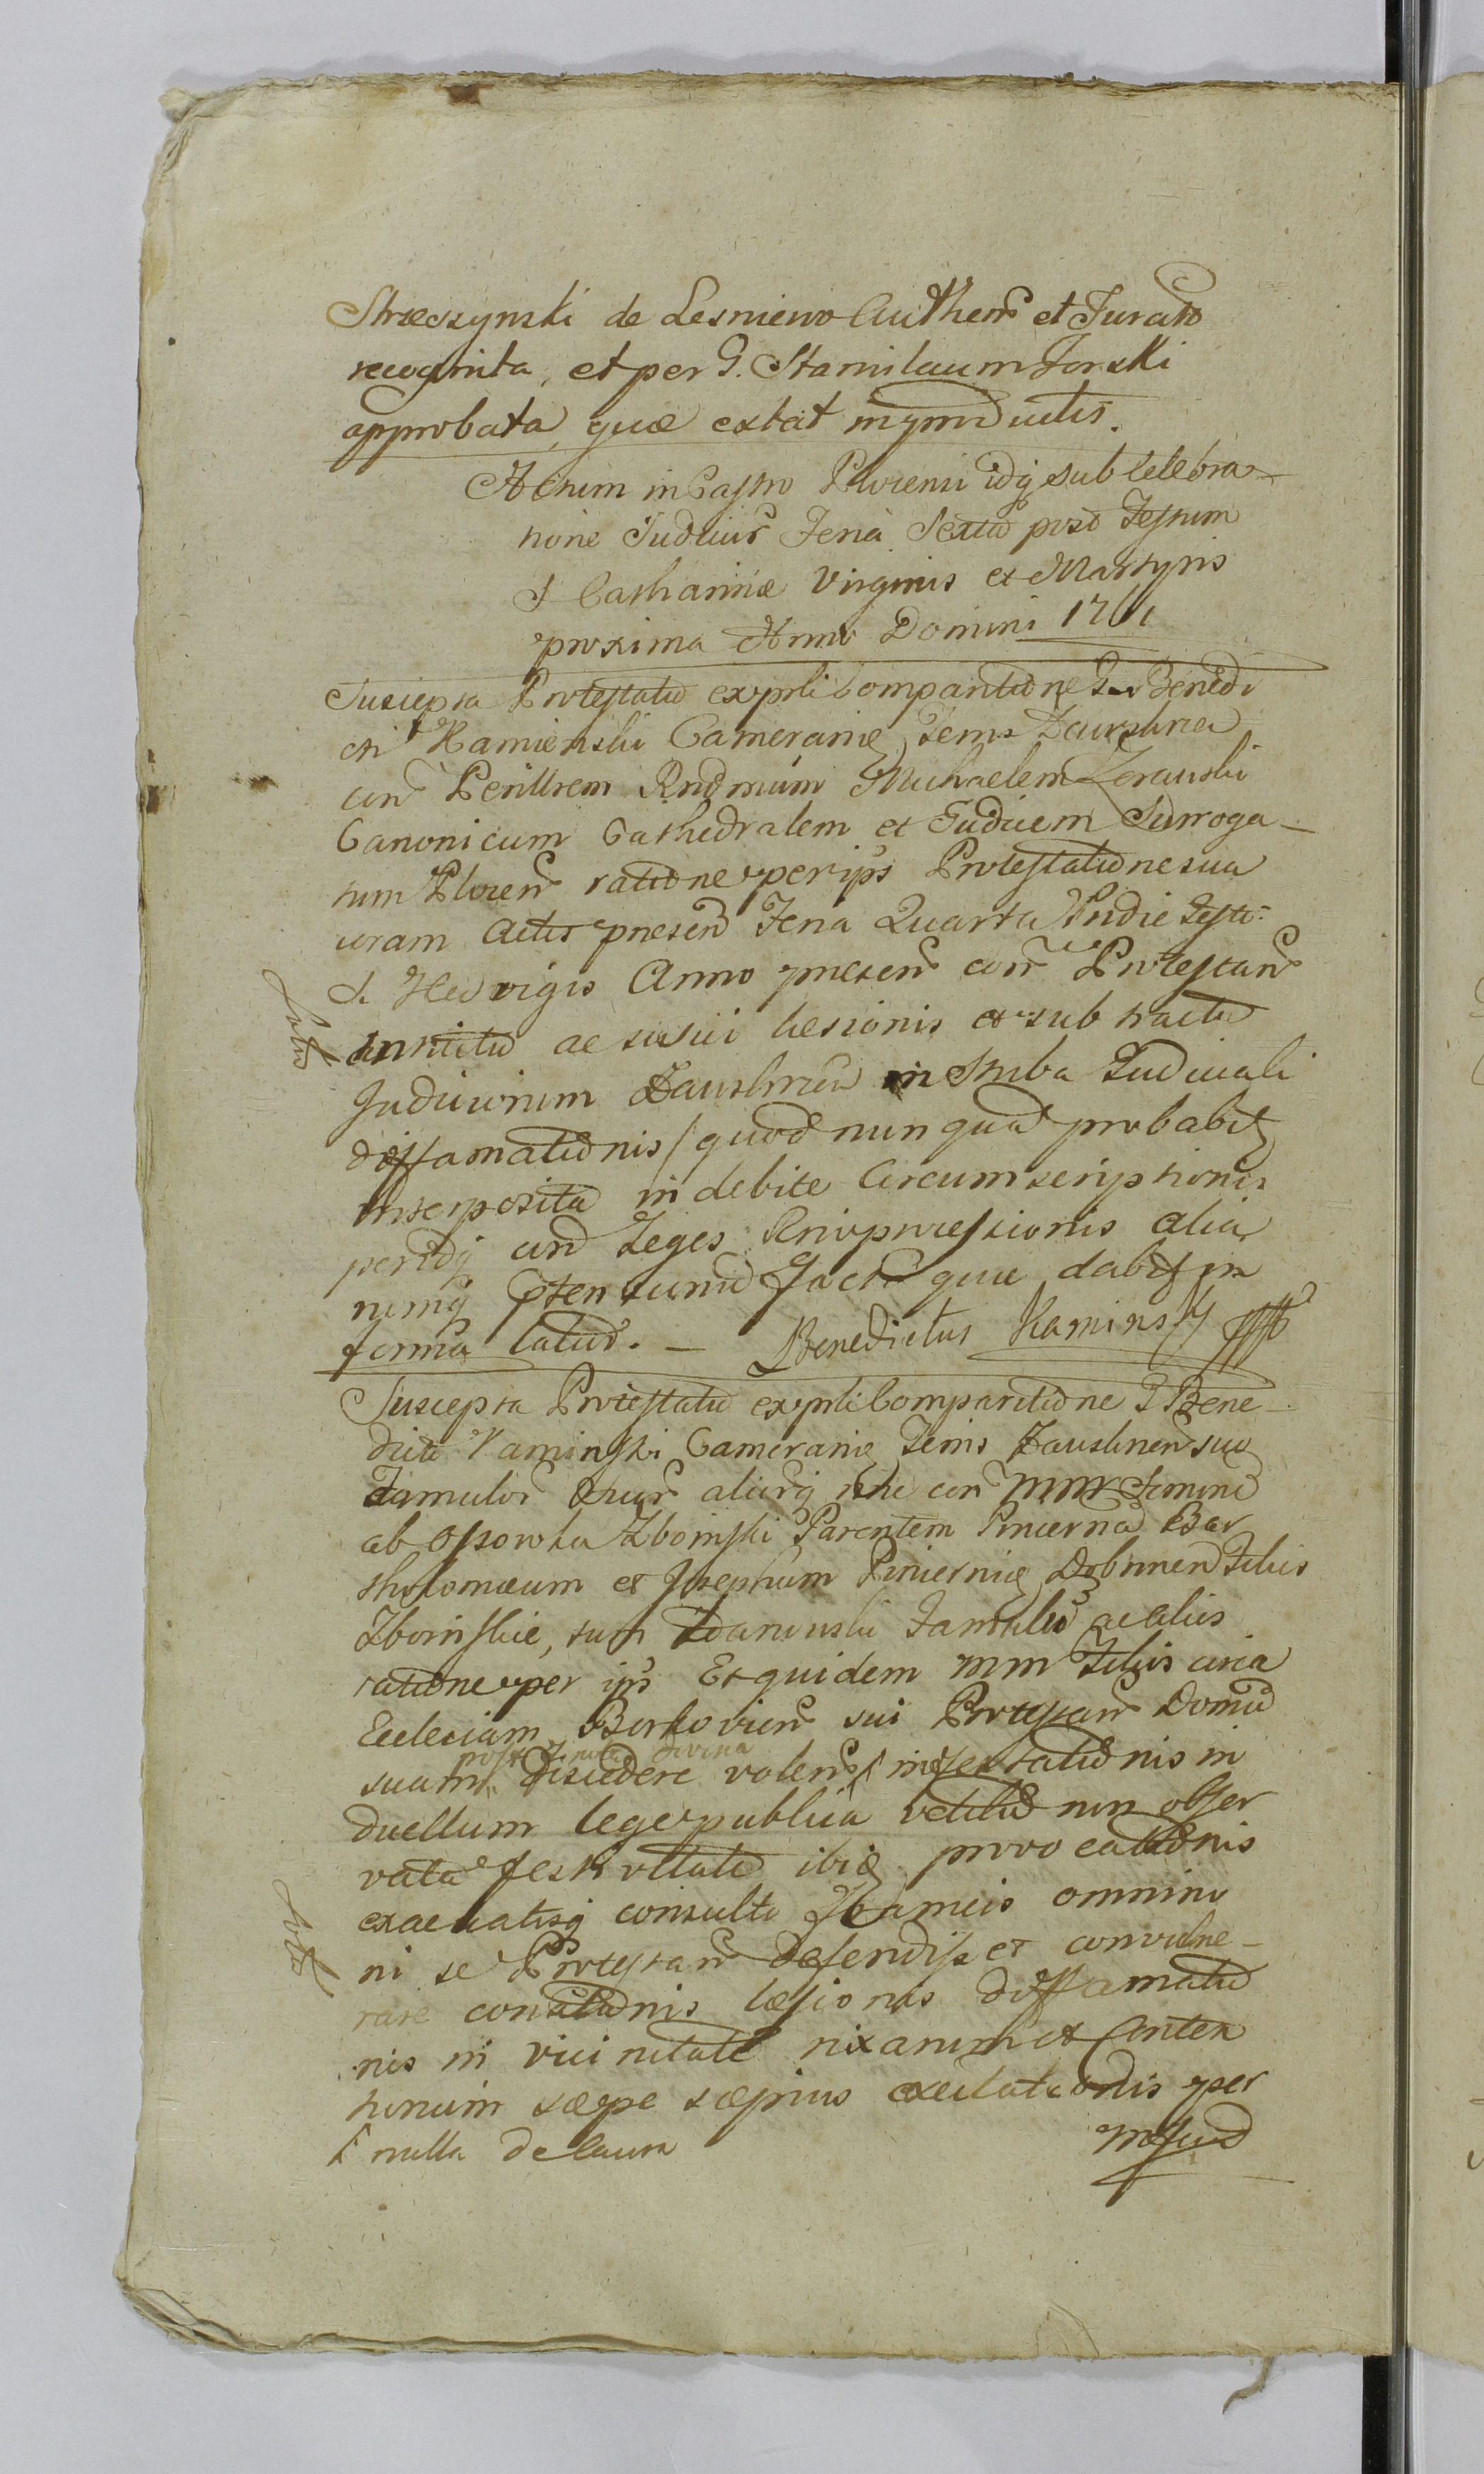 Stræczynski de Lesniewo Authen et Jurato
recognita, et per G. Stanislaum Torski
approbata, quæ extat in induct.
Actum in Castro Plocensi idq sub celebra-
tione Judicior Feria Sexta post Festum
S Catharinæ Virginis et Martyris
proxima Anno Domini 1761
Suscepta Protestatio ex prli Comparitione G Benedi
cti Kamienski Cameranie Tenis Zawskrnen
con Perillrem Rndmum Michaelem Zerawski
Canonicum Cathedralem et Judicem Surroga-
tum Plocen ratione per ips Protestatione sua
coram Actis presen Feria Quarta Pridie Festi
S. Hedvigis Anno presen con Protestan
Judiciorum Zawskrnen in Stuba Judiciali
diffamationis / quod nunquam probabit
interposita indebite Circumscriptionis
peridq con Leges oppressionis alia
rumq pten Facto quæ dabit in
forma latior. - Benedictus Kaminsky
Suscepta Protestatio ex prli Comparitione G Bene-
dicti Kaminski Cameranie Tenis Zauskrnen suo
Famulor suor aliorq con MM Simone
ab Ossowka Zboinski Parentem Pincerna Bar
tholomæum et Josephum Pincernie Dobrinen Filios
Zboinskie, tum Zdanowski Famulo ac alios
ratione per ips Et quidem MM Filios circa
Ecclesiam Borkovien sui Protestan Domum
post divina
suam discedere volen infestationis in
duellum lege publica vetitum non obser
vata festivitate ibiq provocationis
consulto omnino
ni se Protestan defendisset convulne-
rare conationis læsionis diffamatio
nis in vicinitate rixarum et Conten
tionum sæpe sæpius excitationis per
nulla de causa